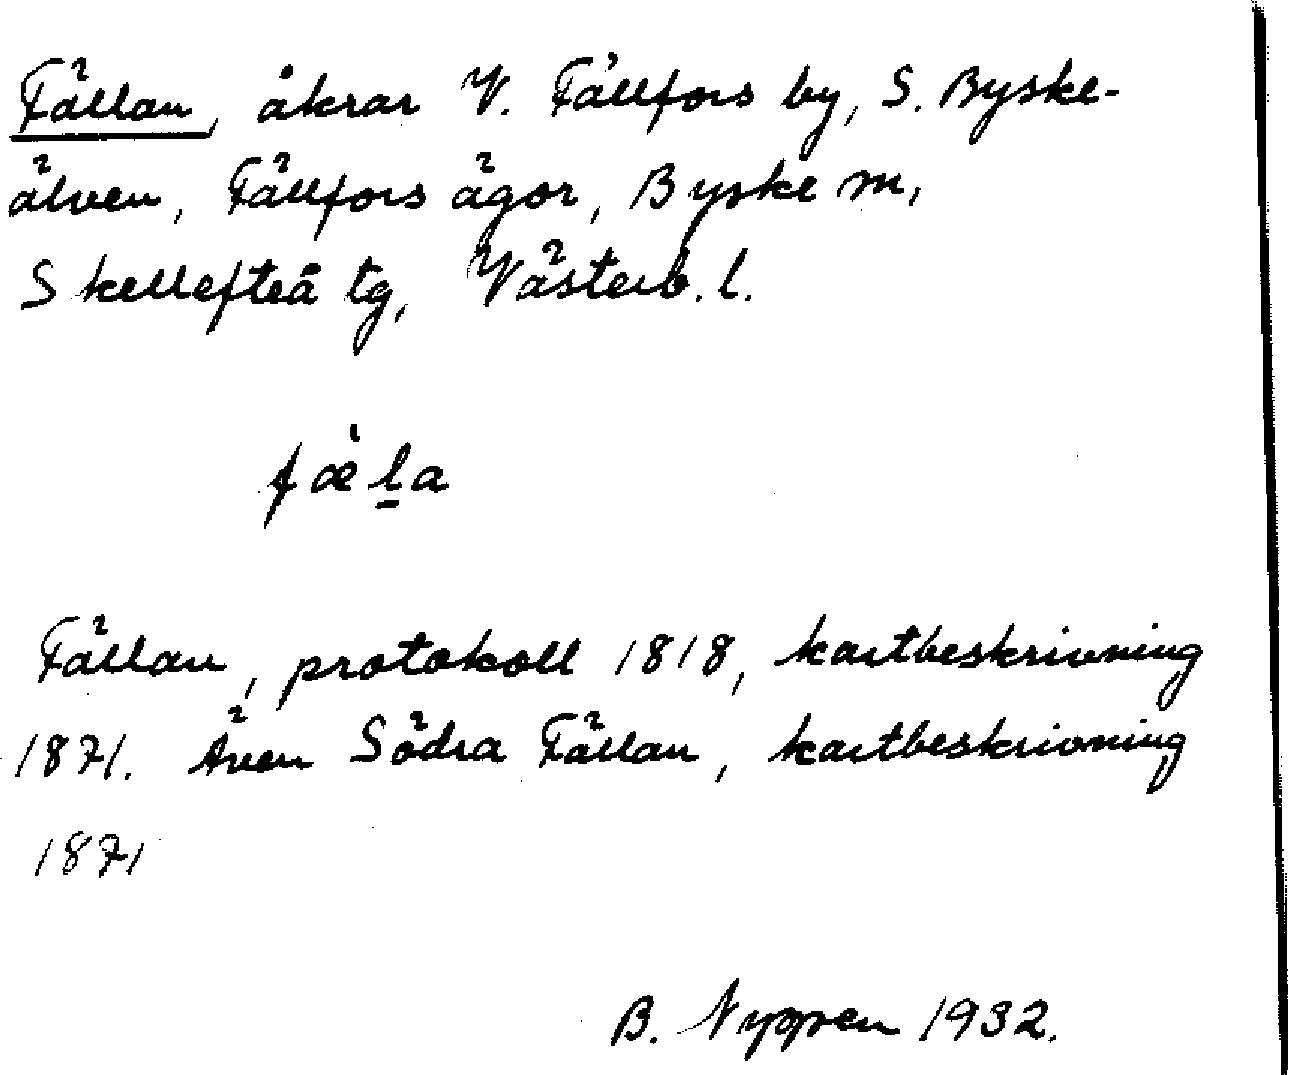 Fällan, åkrar V. Fällfors by, S. Byske-
älven, Fällfors ägor, Byske sn,
Skellefteå tg, Västerb. l.
fæ̀l̠a
Fällan, protokoll 1818, kartbeskrivning
1871. Även Södra Fällan, kartbeskrivning
1871
B. Nyppen 1932.